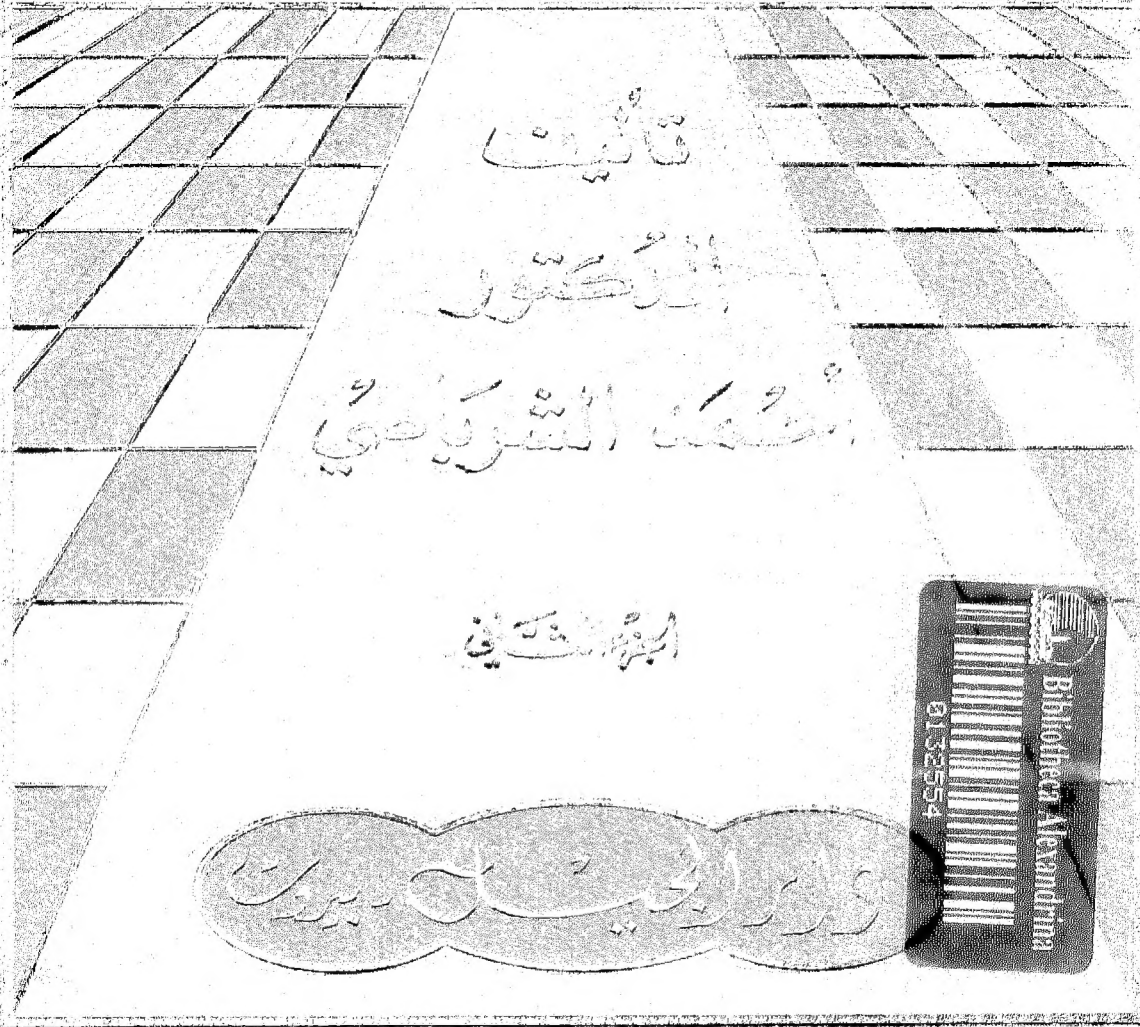 تأليف
الدكتور
أحمد الشرباصي
الجزء الثاني
دار الجيل . بيروت
Bibliotheca Alexandrina
0132554